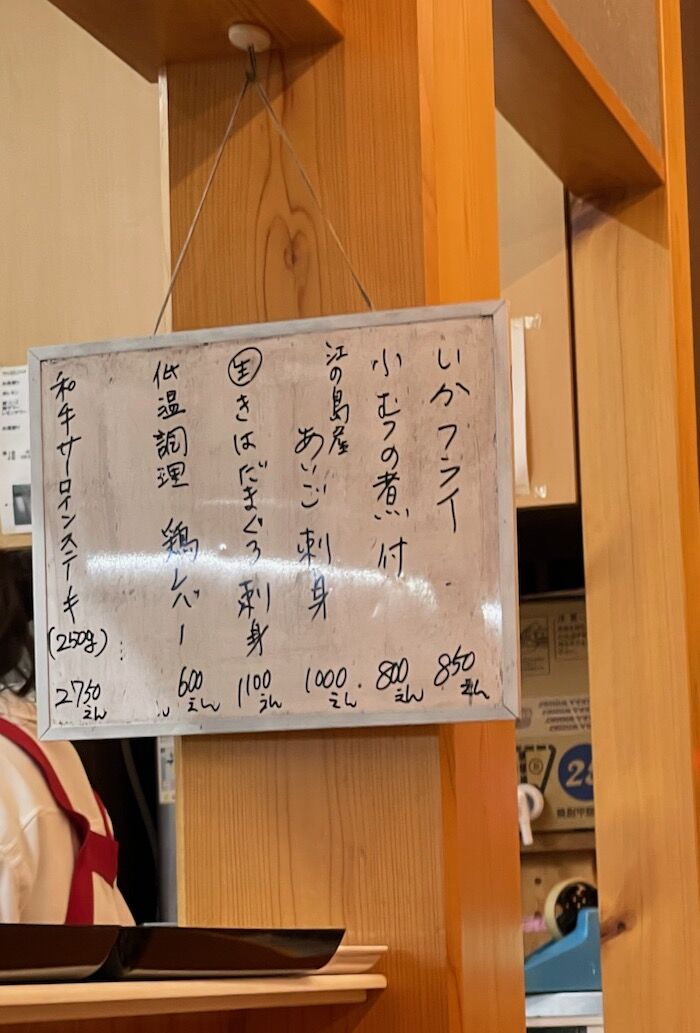 いかフライ 850えん
小むつの煮付 800えん
江の島産 あいご刺身 1000えん
生 きはだまぐろ刺身 1100えん
低温調理 鶏レバー 600えん
和牛サーロインステーキ (250g) 2750えん